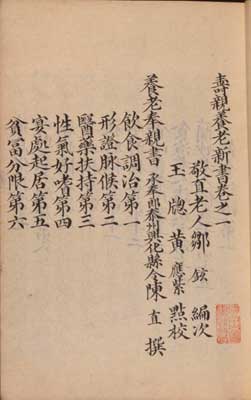 壽親養老新書卷之一
敬直老人鄒 鉉 編次
玉 牕 黃 應紫 點校
養老奉親書 承奉郎泰州興化縣令陳 直 撰
飲食調治第一
形證脉候第二
醫藥扶持第三
性氣好嗜第四
宴處起居第五
貧冨分限第六